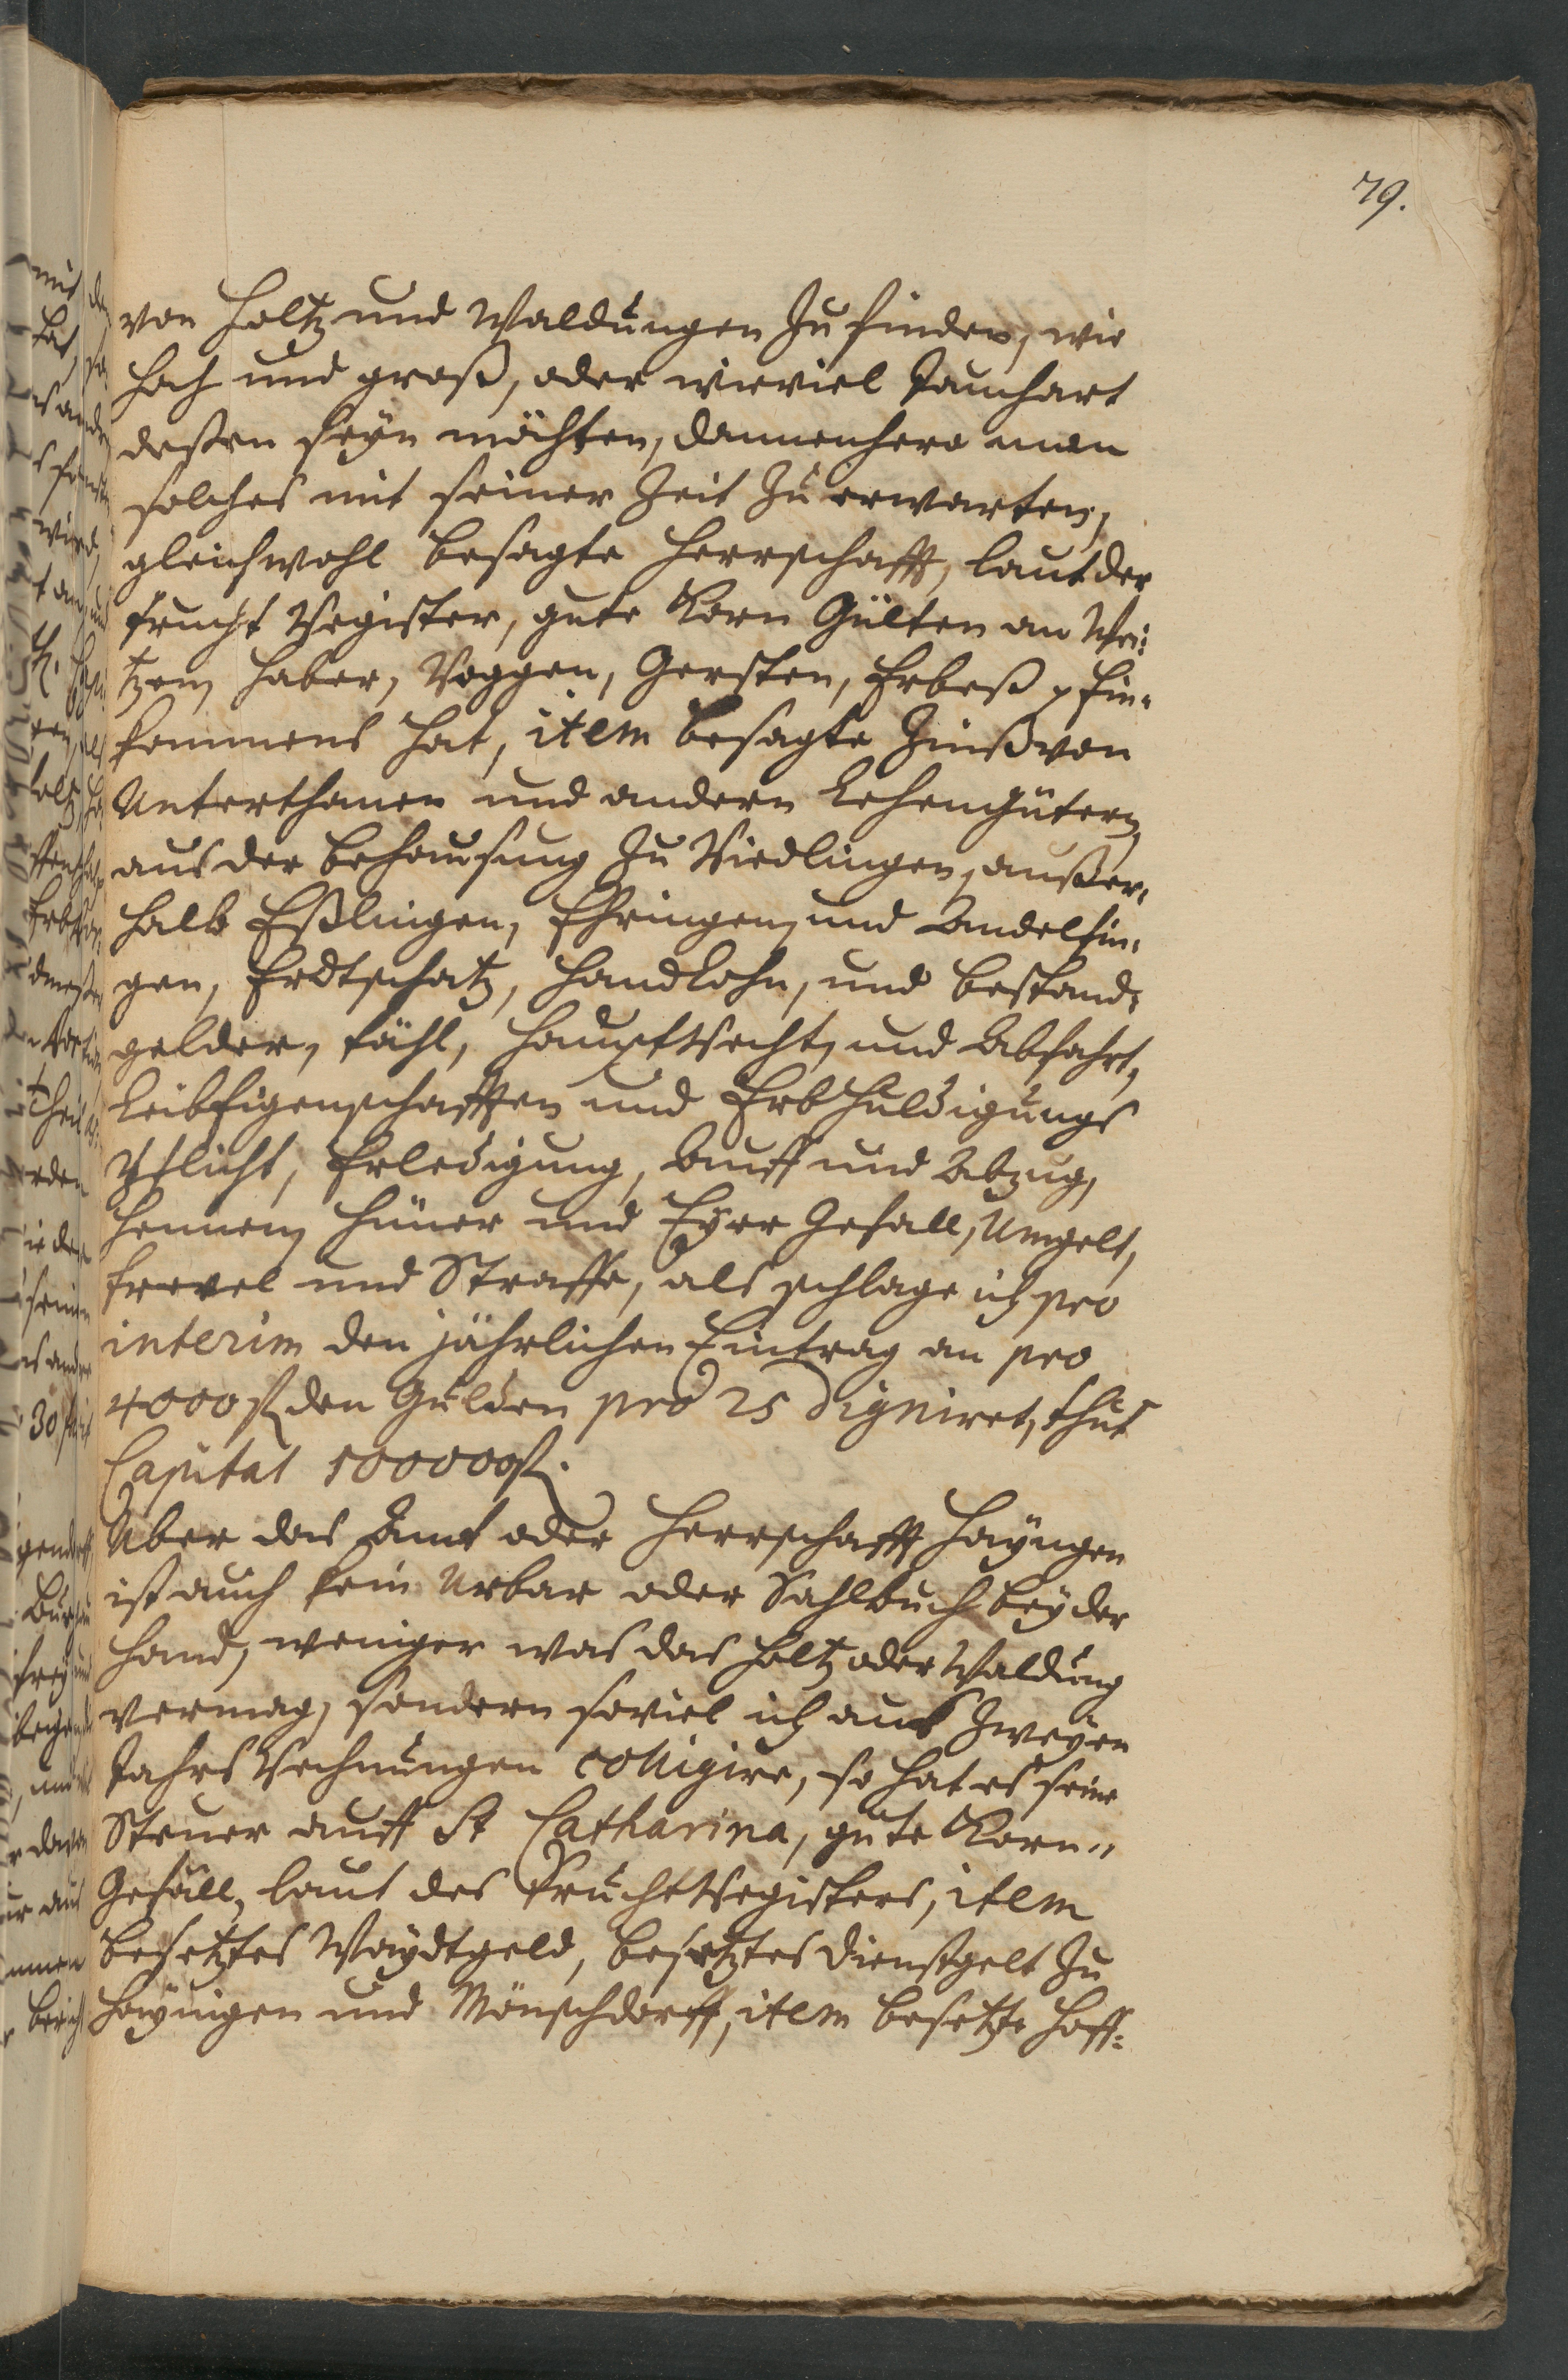 79.
von Holtz und Waldungen zu finden, wie
hoch und groß, oder wieviel Jauchart
deßen seyn möchten, dannenhero man
solches mit seiner Zeit zu erwarten,
gleichwohl besagte Herrschafft, laut der
Frucht Register, gute Korn Gülten an Wei-
tzen, Haber, Roggen, Gersten, Erbeß p Ein-
kommens hat, item besagte Zinß von
Unterthanen und andern Lehengütern,
aus der Behausung zu Riedlingen, außer-
halb Eßlingen, Ehringen, und Andelfin-
gen, Erdtschatz, Handlohn, und Bestand-
gelder, Fähl, Hauptrecht, und Abfahrt,
Leibeigenschafften und Erbhuldigungs
Pflicht, Erledigung, Auff und Abzug,
Hennen, Hüner und Eyer Gefäll, Umgelt,
Frevel und Straffe, als schlage ich pro
interim den jährlichen Eintrag an pro
4000 fl. den Gulden pro 25 digniret, thut
Capital 100000 fl.
Über das Amt oder Herrschafft Hayngen
ist auch kein Urbar oder Sahlbuch bey der
Hand, weniger was das Holtz oder Waldung
vermag, sondern soviel ich aus zweyen
Jahrs Rechnungen colligire, so hat es seine
Steuer auff St Catharina, gute Korn-
Gefäll, laut des Fruchtregisters, item
besetztes Waydtgeld, besetztes Dienstgelt zu
Hayingen und Mönschdorff, item besetzte Hoff-